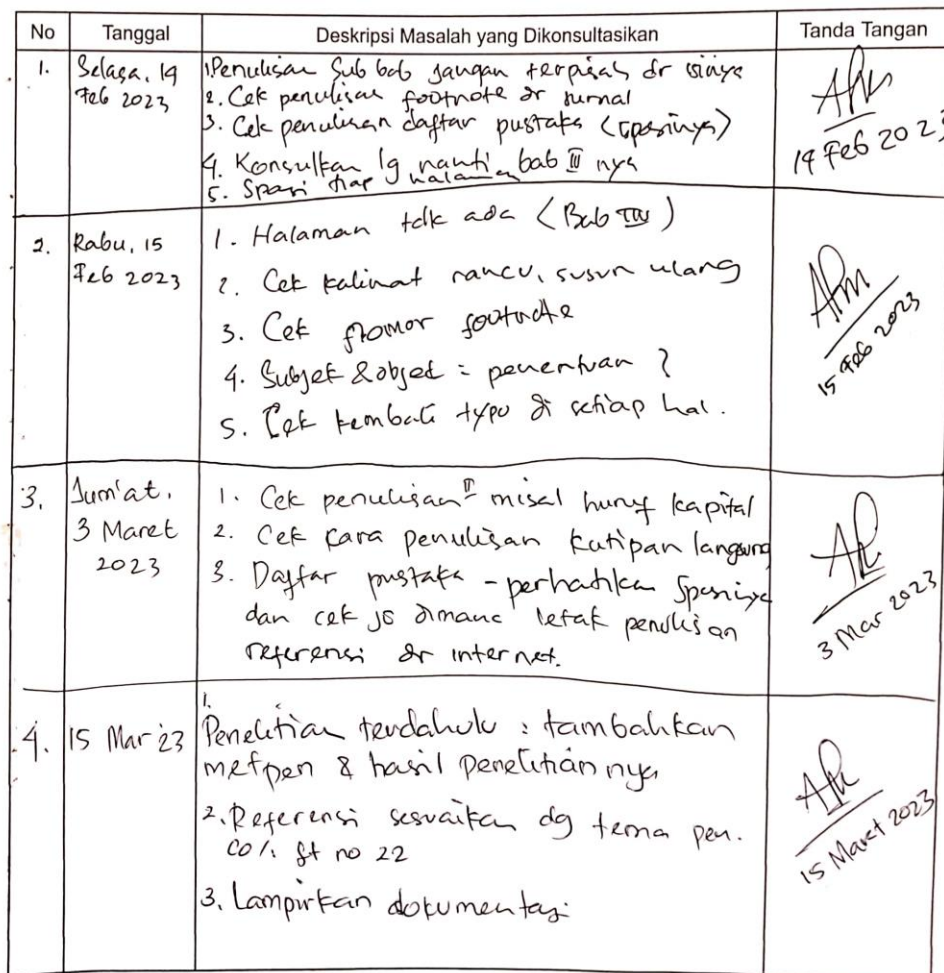 No Tanggal Deskripsi Masalah yang Dikonsultasikan Tanda Tangan
1. Selasa, 14
Feb 2023
1. Penulisan Sub bab jangan terpisah dr isinya
2. Cek penulisan footnote dr jurnal
3. Cek penulisan daftar pustaka (spasinya)
4. Konsulkan lg nanti bab III nya
5. Spasi tiap halaman
14 Feb 2023
2. Rabu, 15
Feb 2023
1. Halaman tdk ada (Bab III)
2. Cek kalimat rancu, susun ulang
3. Cek nomor footnote
4. Subjek & objek = penentuan ?
5. Cek kembali typo di setiap hal.
15 Feb 2023
3. Jum'at,
3 Maret
2023
1. Cek penulisan" misal huruf kapital
2. Cek cara penulisan kutipan langsung
3. Daftar pustaka - perhatikan spasinya
dan cek jg dimana letak penulisan
referensi dr internet.
3 Mar 2023
4. 15 Mar '23
1. Penelitian terdahulu : tambahkan
metpen & hasil penelitian nya
2. Referensi sesuaikan dg tema pen.
ft no 22
3. Lampirkan dokumentasi
15 Maret 2023